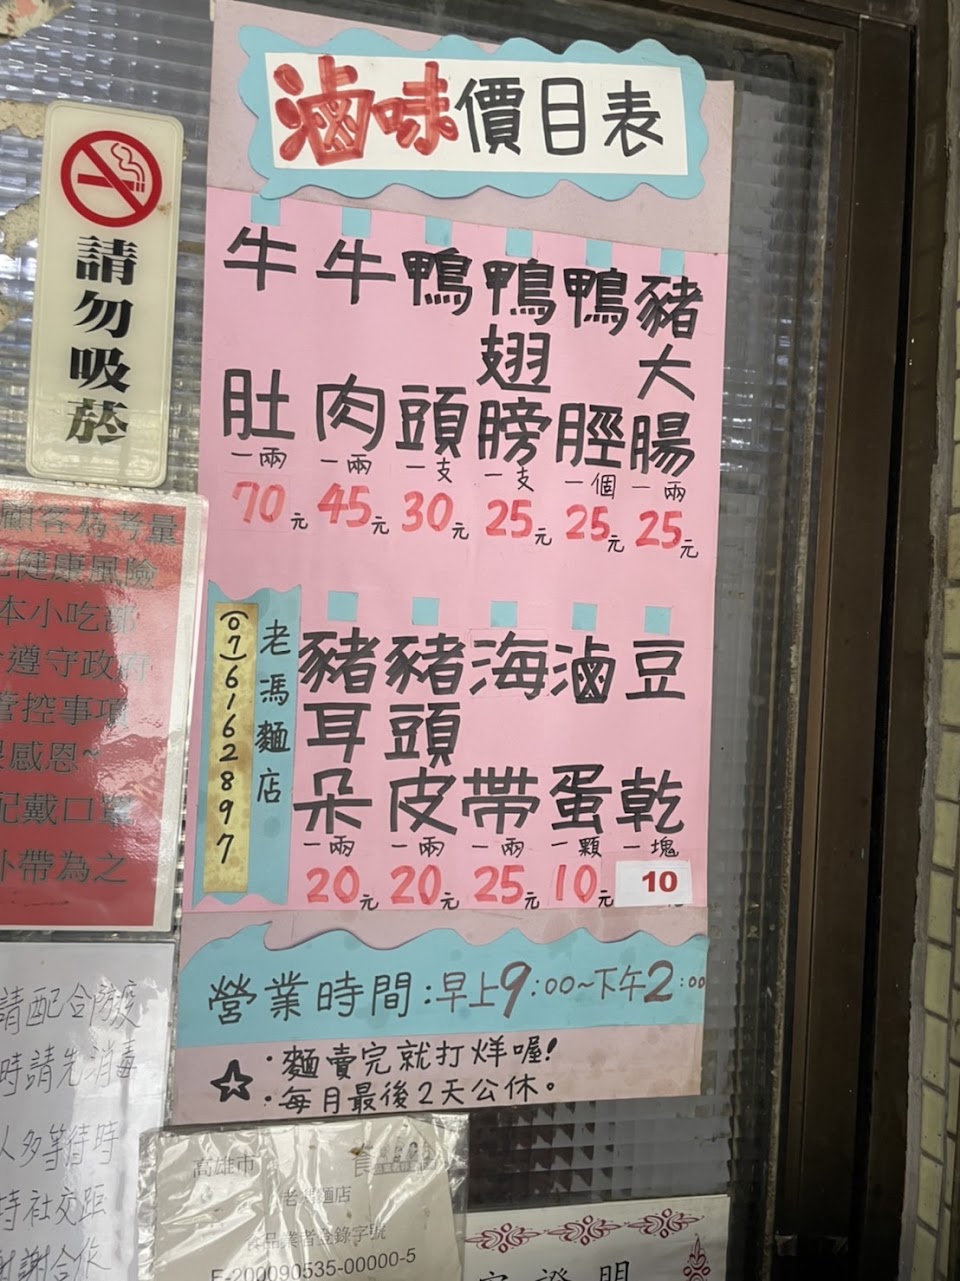 滷味價目表
牛肚 一兩 70元
牛肉 一兩 45元
鴨頭 一支 30元
鴨翅膀 一支 25元
鴨脛 一個 25元
豬大腸 一兩 25元
老馮麵店
(07)6162897
豬耳朵 一兩 20元
豬頭皮 一兩 20元
海帶 一兩 25元
滷蛋 一顆 10元
豆乾 一塊 10
營業時間:早上9:00~下午2:00
☆·麵賣完就打烊喔!
·每月最後2天公休。
請勿吸菸
顧客為考量
健康風險
本小吃部
遵守政府
管控事項
感恩~
配戴口罩
外帶為之
請配合防疫
時請先消毒
人多等待時
持社交距
謝謝合作
高雄市
老馮麵店
食品業者登錄字號
E-200090535-00000-5
證明